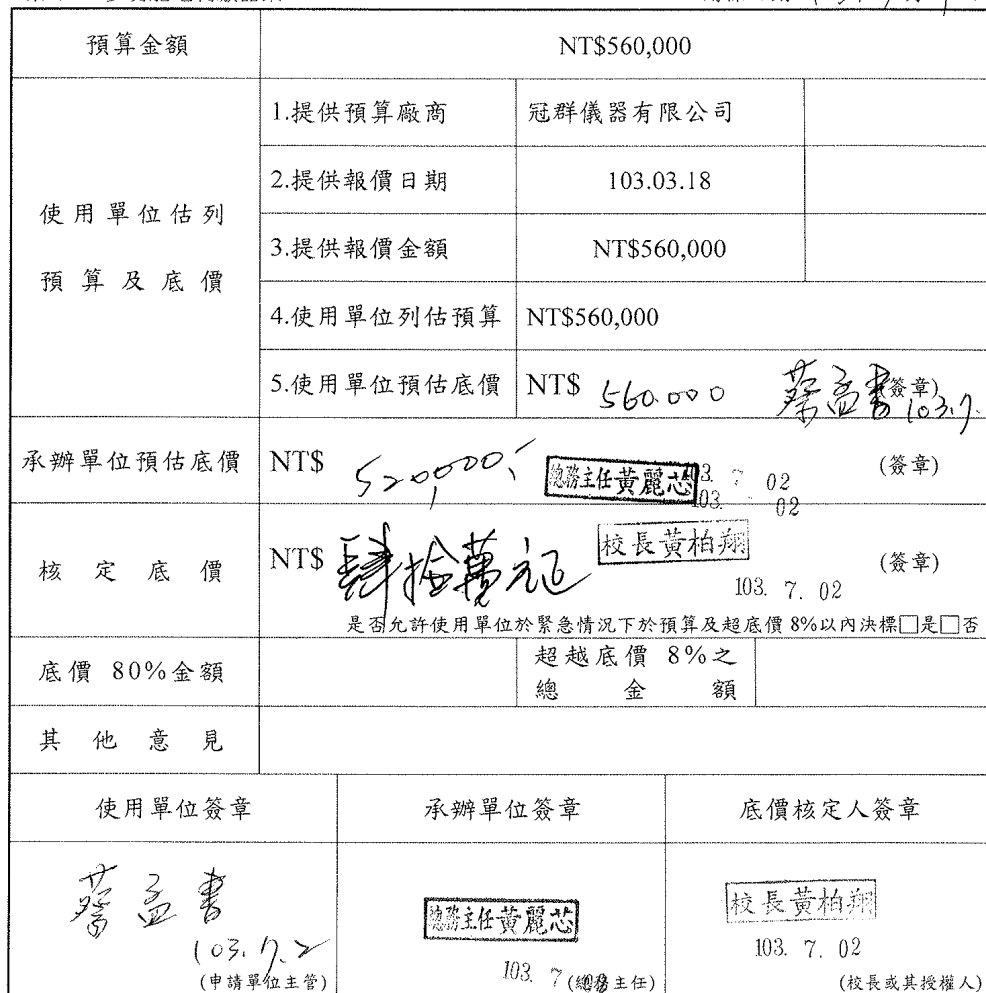 預算金額 NT$560,000
使用單位估列
預算及底價
1.提供預算廠商 冠群儀器有限公司
2.提供報價日期 103.03.18
3.提供報價金額 NT$560,000
4.使用單位列估預算 NT$560,000
5.使用單位預估底價 NT$ 560.000 蔡孟書 (簽章) 103.7.
承辦單位預估底價 NT$ 520,000 總務主任黃麗芯 103. 7 02 (簽章)
103. 02
核定底價 NT$ 肆拾萬元正 校長黃柏翔 (簽章)
103. 7. 02
是否允許使用單位於緊急情況下於預算及超底價 8%以內決標□是□否
底價 80%金額 超越底價 8%之
總金額
其他意見
使用單位簽章 承辦單位簽章 底價核定人簽章
蔡孟書 總務主任黃麗芯 校長黃柏翔
103.7.2 103. 7 103. 7. 02
(申請單位主管) (總務主任) (校長或其授權人)